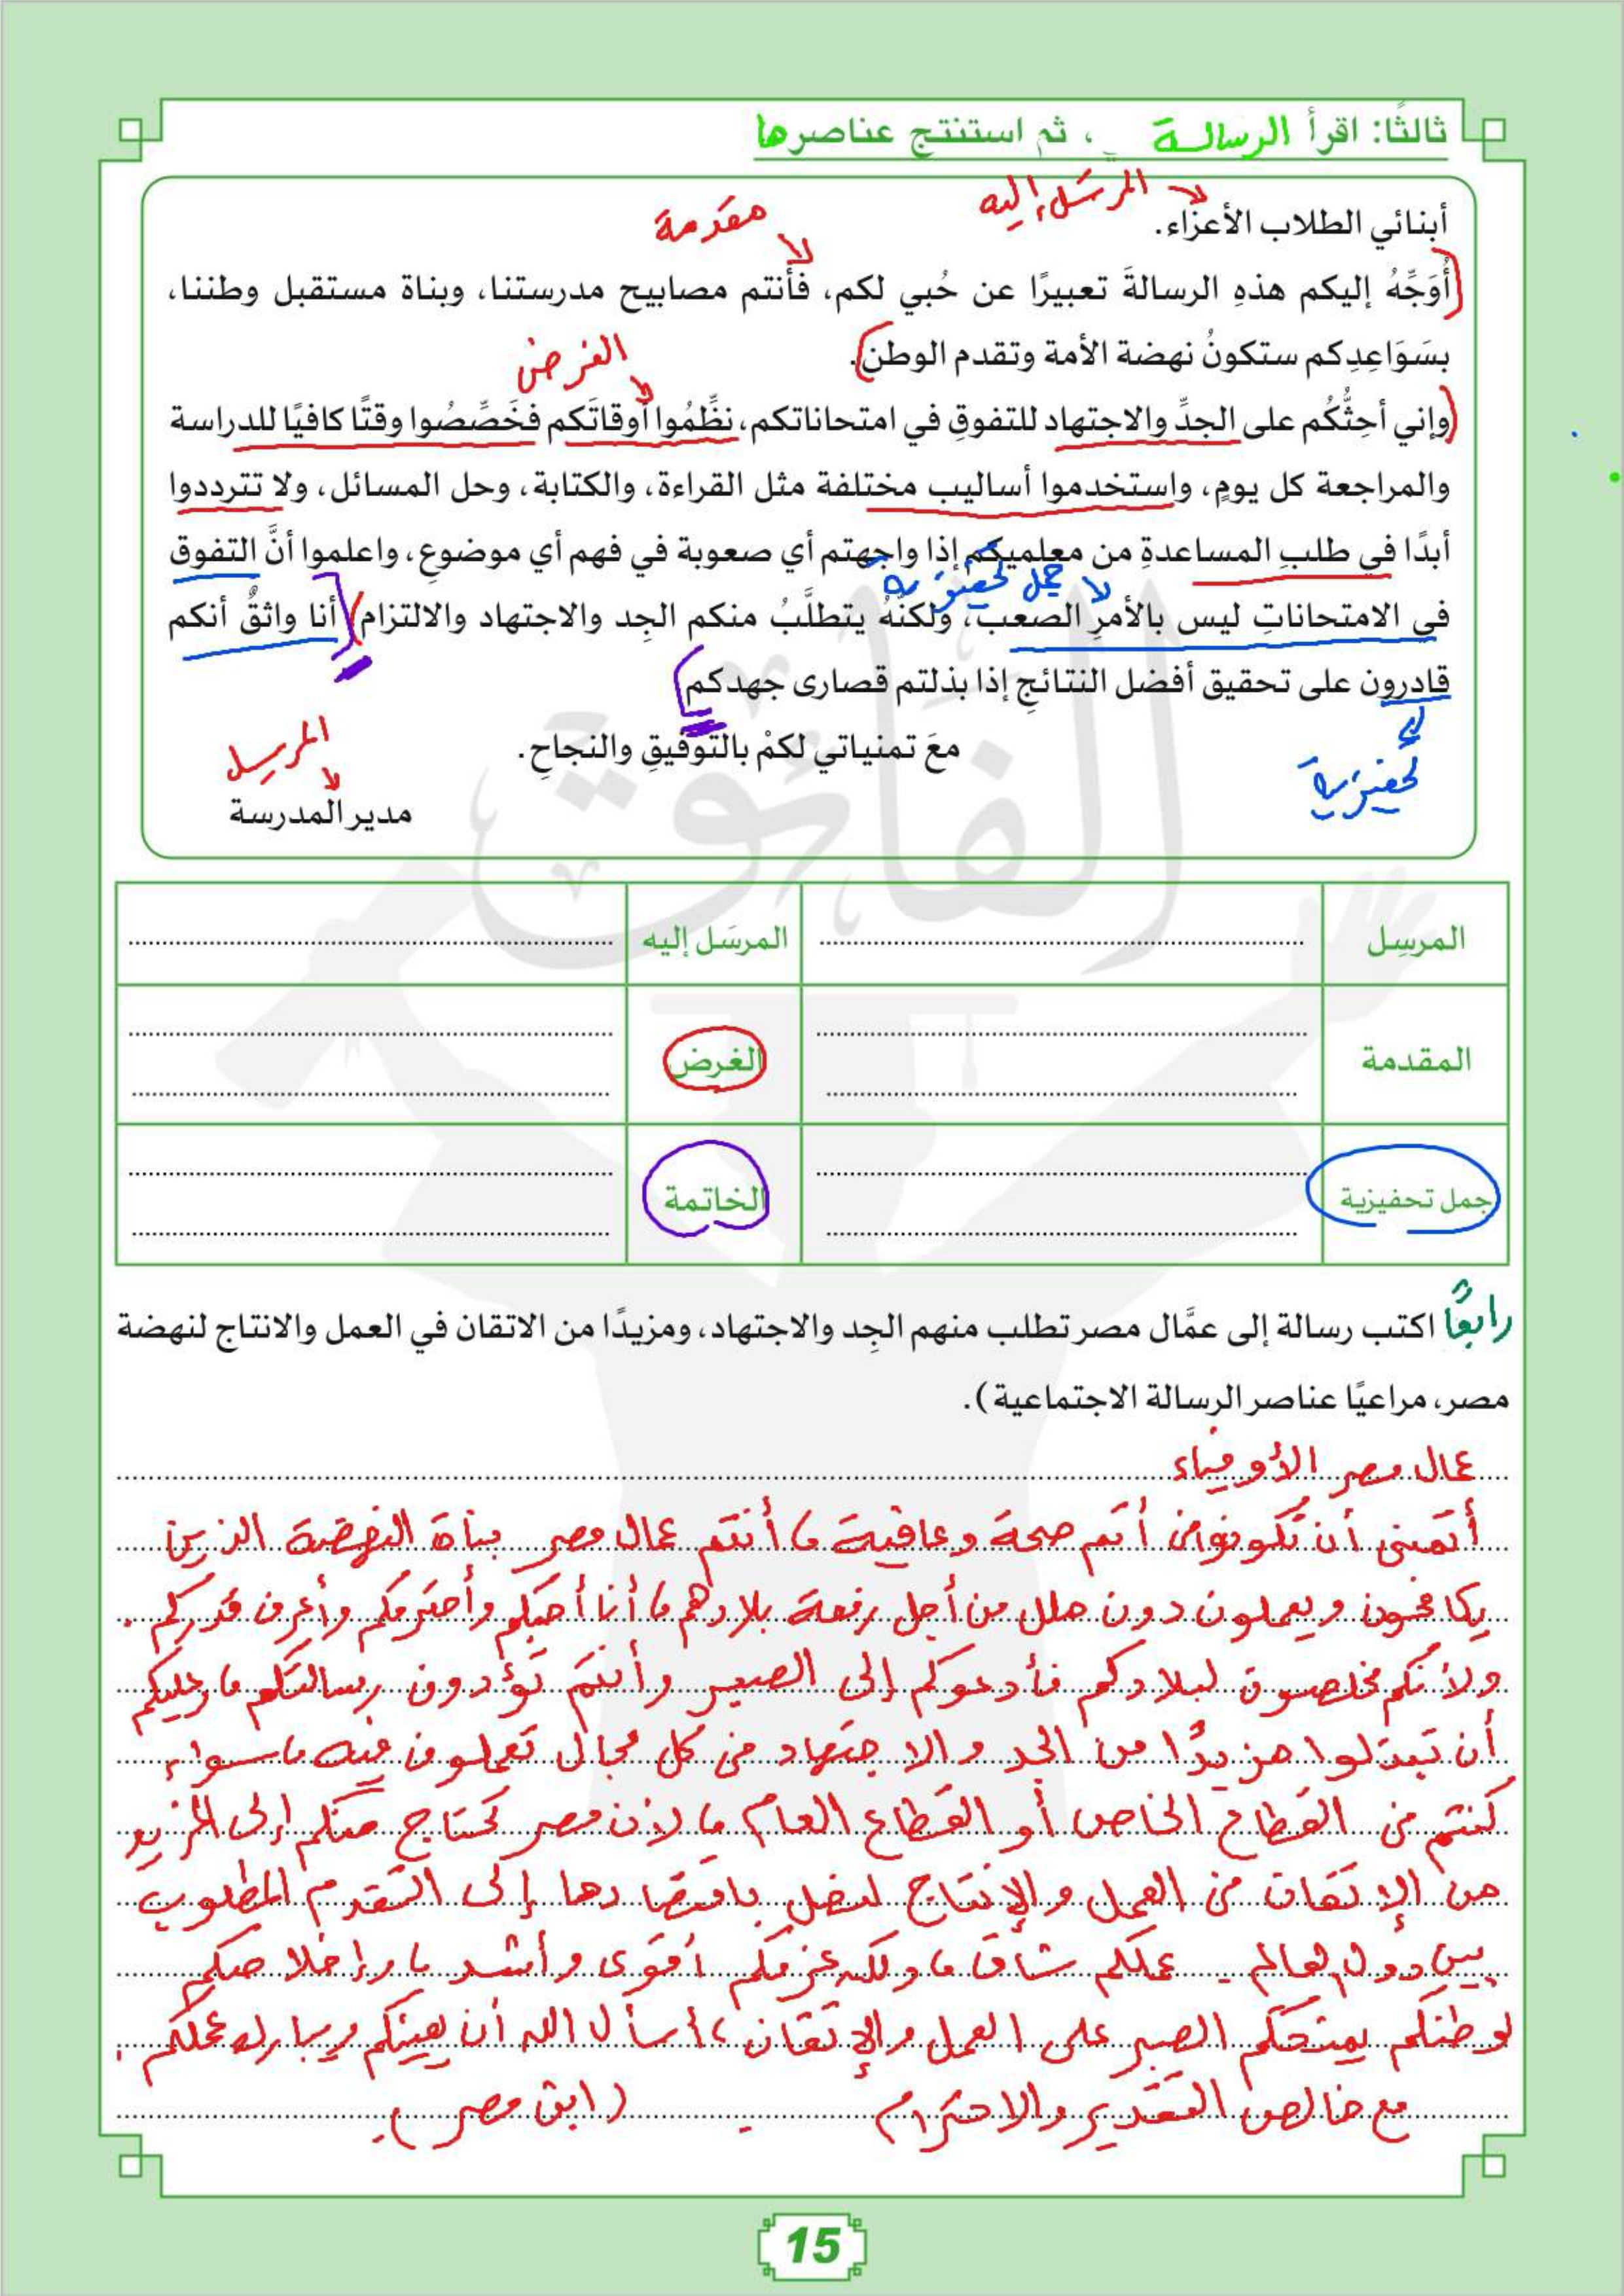 ثالثًا: اقرأ الرسالة ، ثم استنتج عناصرها
المرسَل إليه
أبنائي الطلاب الأعزاء.
مقدمة
أُوَجِّهُ إليكم هذهِ الرسالةَ تعبيرًا عن حُبي لكم، فأنتم مصابيح مدرستنا، وبناة مستقبل وطننا،
بسَوَاعِدِكم ستكونُ نهضة الأمة وتقدم الوطن).
الغرض
(وإني أحِثُّكُم على الجدِّ والاجتهاد للتفوقِ في امتحاناتكم، نظِّمُوا أوقاتَكم فخَصِّصُوا وقتًا كافيًا للدراسة
والمراجعة كل يومٍ، واستخدموا أساليب مختلفة مثل القراءة، والكتابة، وحل المسائل، ولا تترددوا
أبدًا في طلبِ المساعدةِ من معلميكم إذا واجهتم أي صعوبة في فهم أي موضوع، واعلموا أنَّ التفوق
جمل تحفيزية
في الامتحاناتِ ليس بالأمرِ الصعب، ولكنَّهُ يتطلَّبُ منكم الجِد والاجتهاد والالتزام) أنا واثقٌ أنكم
قادرون على تحقيق أفضل النتائجِ إذا بذلتم قصارى جهدكم
تحفيزية
معَ تمنياتي لكمْ بالتوفيقِ والنجاحِ.
المرسِل
مدير المدرسة
المرسِل المرسَل إليه
المقدمة الغرض
جمل تحفيزية الخاتمة
رابعًا اكتب رسالة إلى عمَّال مصر تطلب منهم الجِد والاجتهاد، ومزيدًا من الاتقان في العمل والانتاج لنهضة
مصر، مراعيًا عناصر الرسالة الاجتماعية).
عمال مصر الأوفياء
أتمنى أن تكونوا في أتم صحة وعافية، أنتم عمال مصر بناة النهضة الذين
يكافحون ويعملون دون ملل من أجل رفعة بلادهم، أنا أحبكم وأحترمكم وأعرف قدركم.
ولأنكم مخلصون لبلادكم فأدعوكم إلى الصبر وأنتم تؤدون رسالتكم، عليكم
أن تبذلوا مزيدًا من الجد والاجتهاد في كل مجال تعملون فيه، سواء
كنتم في القطاع الخاص أو القطاع العام، لأن مصر تحتاج منكم إلى المزيد
من الإتقان في العمل والإنتاج لنصل باقتصادها إلى التقدم المطلوب
بين دول العالم - عملكم شاق، ولكن عزمكم أقوى وأشد، وإخلاصكم
لوطنكم يمنحكم الصبر على العمل والإتقان، أسأل الله أن يعينكم ويبارك عملكم.
مع خالص التقدير والاحترام - (ابن مصر).
15